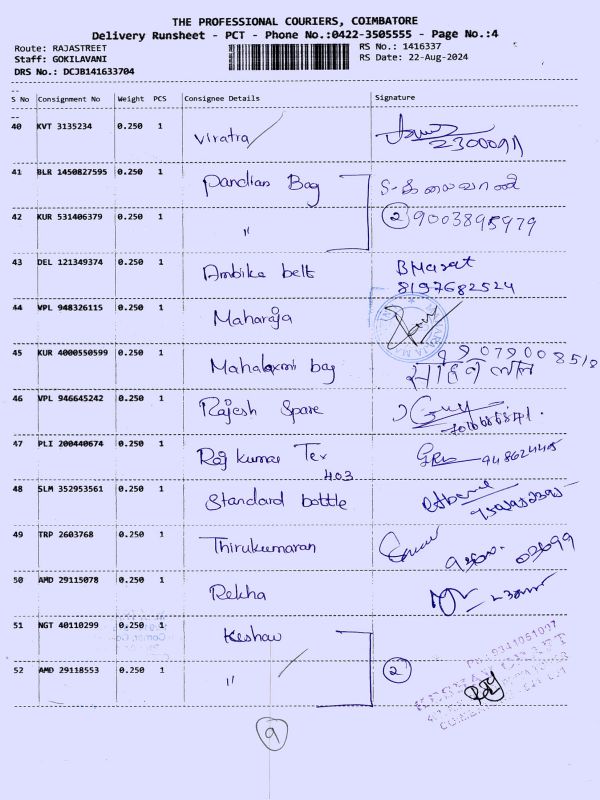 THE PROFESSIONAL COURIERS, COIMBATORE
Delivery Runsheet - PCT - Phone No.:0422-3505555 - Page No.:4
Route: RAJASTREET
Staff: GOKILAVANI
DRS No.: DCJB141633704
RS No.: 1416337
RS Date: 22-Aug-2024
S No Consignment No Weight PCS Consignee Details Signature
40 KVT 3135234 0.250 1 Viratra
41 BLR 1450827595 0.250 1 Pandian Bag S-கலைவாணி
42 KUR 531406379 0.250 1 " 2 9003895979
43 DEL 121349374 0.250 1 Ambika belt Bharat
8197682524
44 VPL 948326115 0.250 1 Maharaja
45 KUR 4000550599 0.250 1 Mahalaxmi bag
46 VPL 946645242 0.250 1 Rajesh Spare
47 PLI 200440674 0.250 1 Raj kumar Tex
403
48 SLM 352953561 0.250 1 Standard bottle
49 TRP 2603768 0.250 1 Thirukumaran
50 AMD 29115078 0.250 1 Rekha
51 NGT 40110299 0.250 1 Keshav
52 AMD 29118553 0.250 1 " 2
9